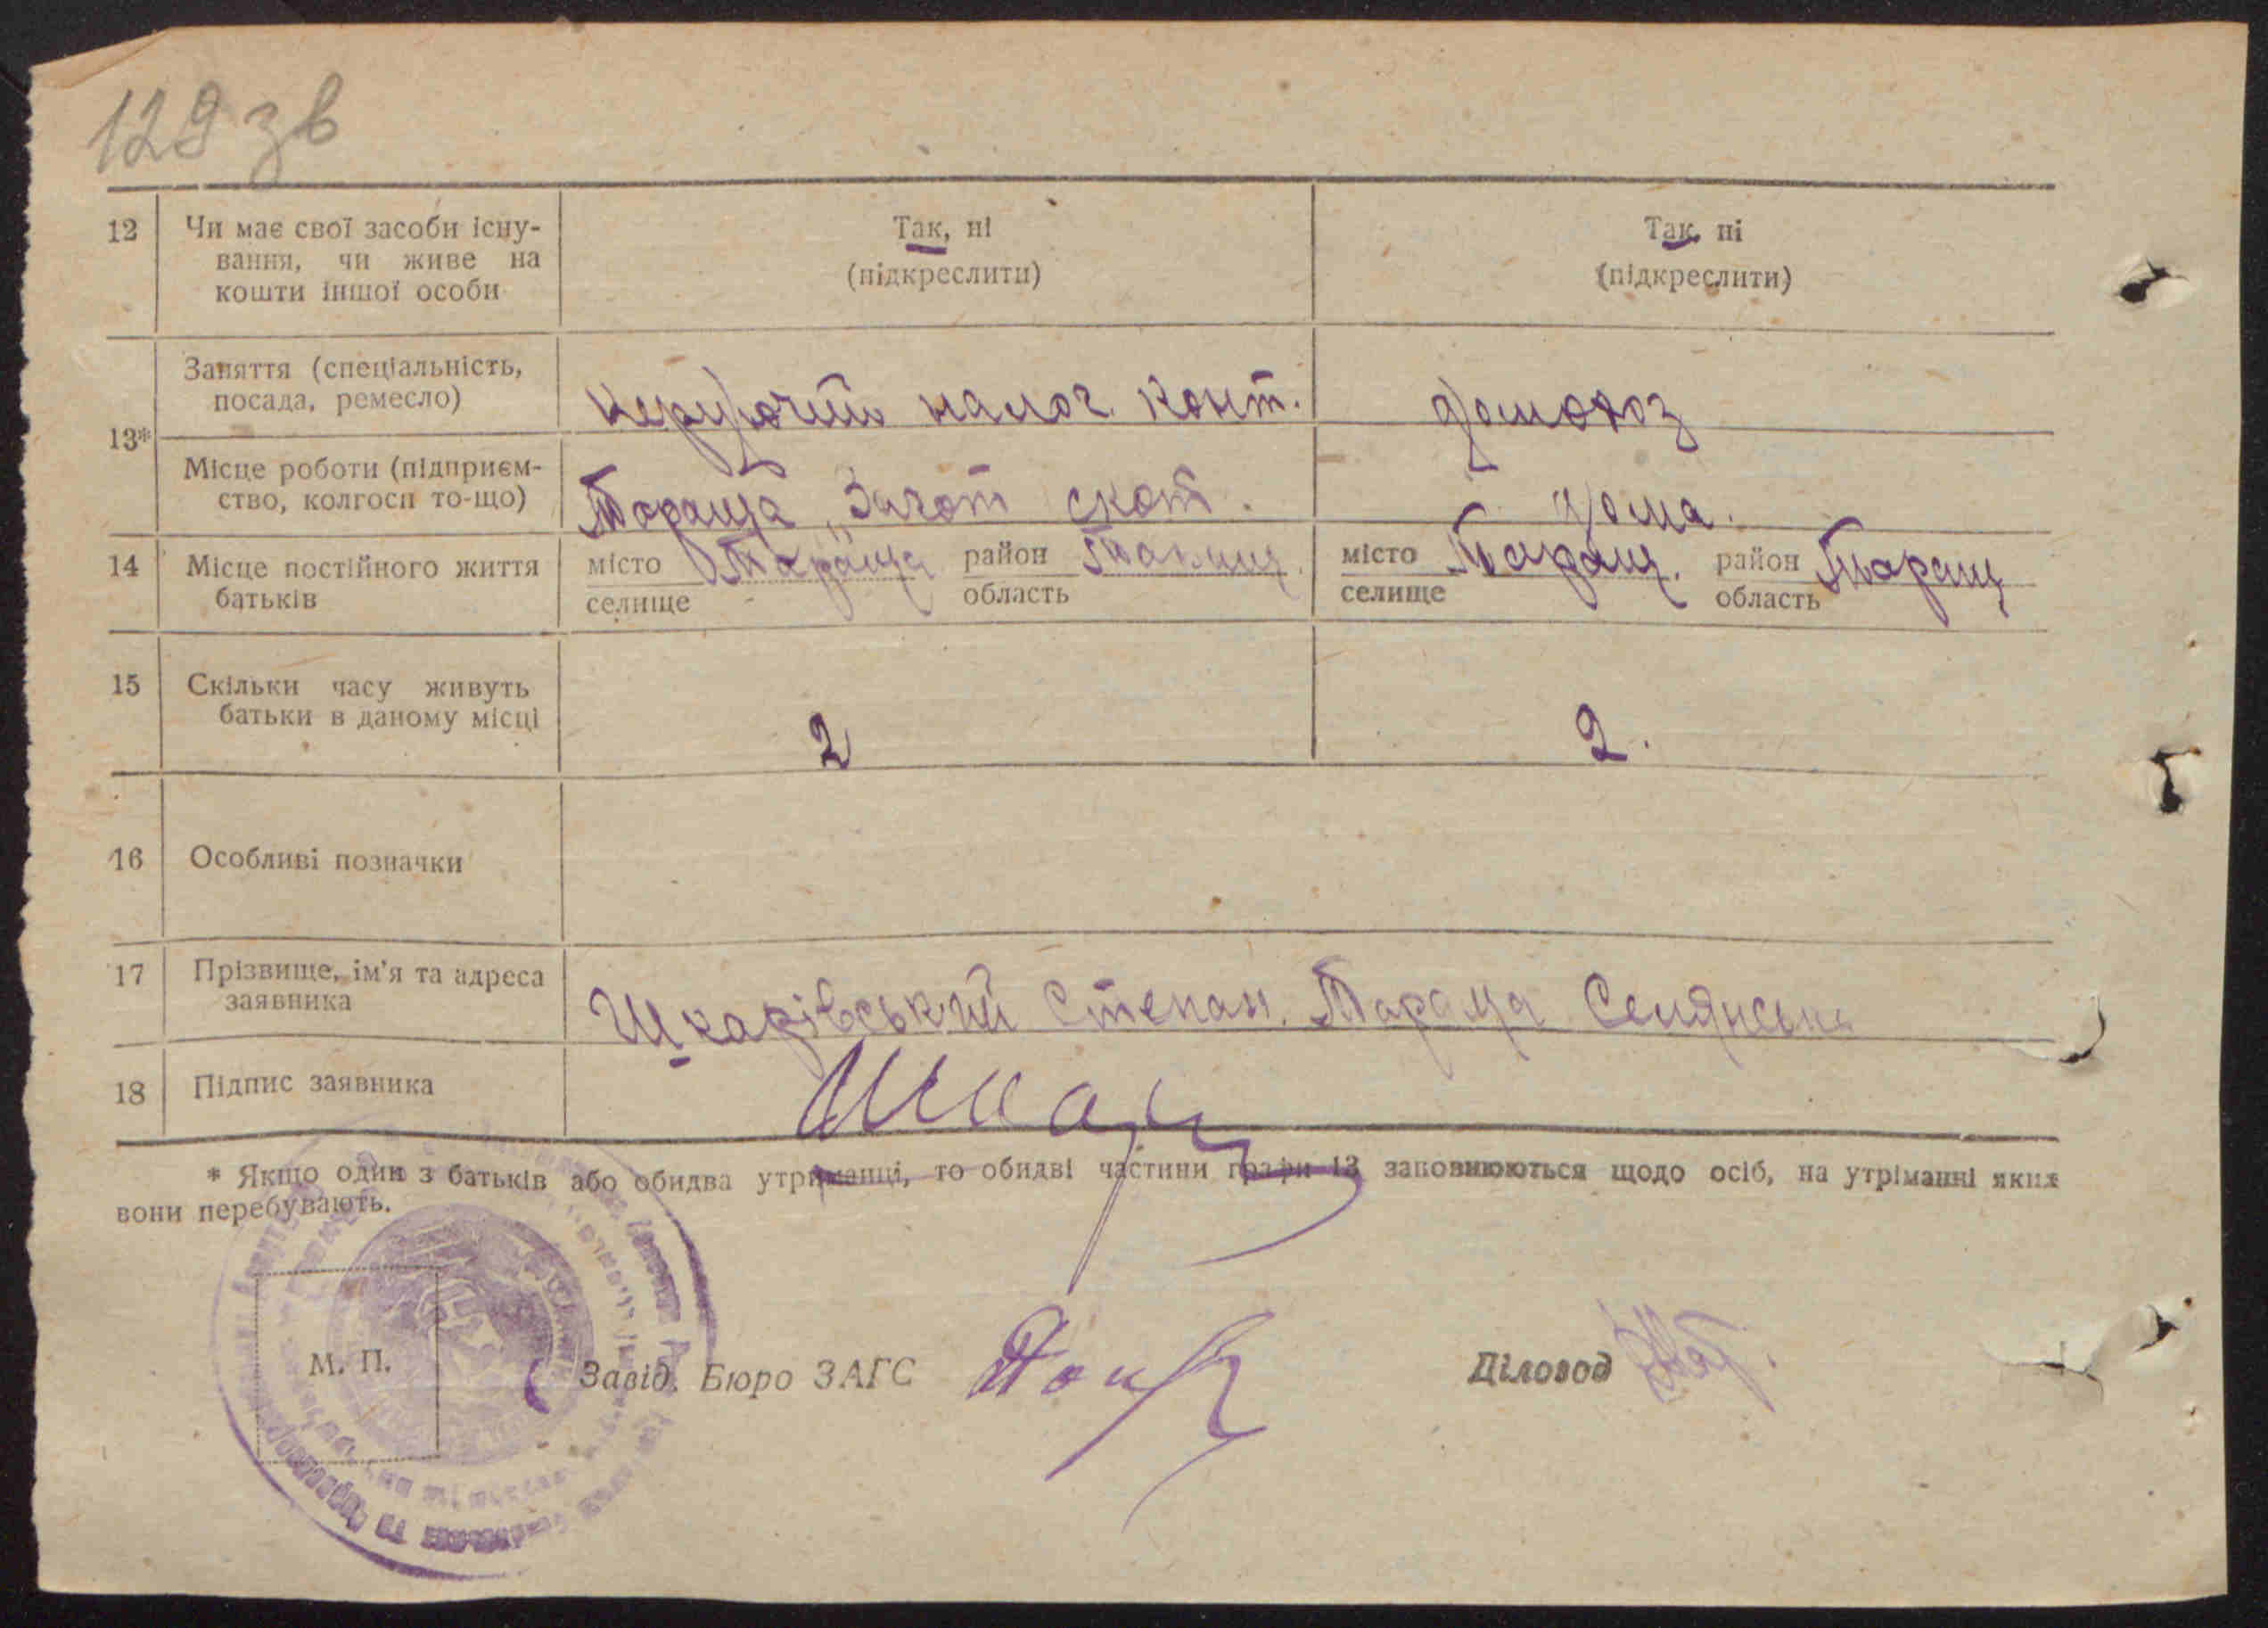 129 зв
12 Чи має свої засоби існу- Так, ні Так, ні
вання, чи живе на (підкреслити) (підкреслити)
кошти іншої особи
13* Заняття (спеціальність,
посада, ремесло) керуючий конт. домохоз
Місце роботи (підприєм-
ство, колгосп то-що) Тараща скот. дома.
14 Місце постійного життя місто Тараща район місто Таращ. район Таращ
батьків селище область селище область
15 Скільки часу живуть
батьки в даному місці 2 2.
16 Особливі позначки
17 Прізвище, ім'я та адреса
заявника Шкарівський Степан. Тараща Селянська
18 Підпис заявника
* Якщо один з батьків або обидва утриманці, то обидві частини графи 13 заповнюються щодо осіб, на утріманні яких
вони перебувають.
М. П. Завід. Бюро ЗАГС Діловод